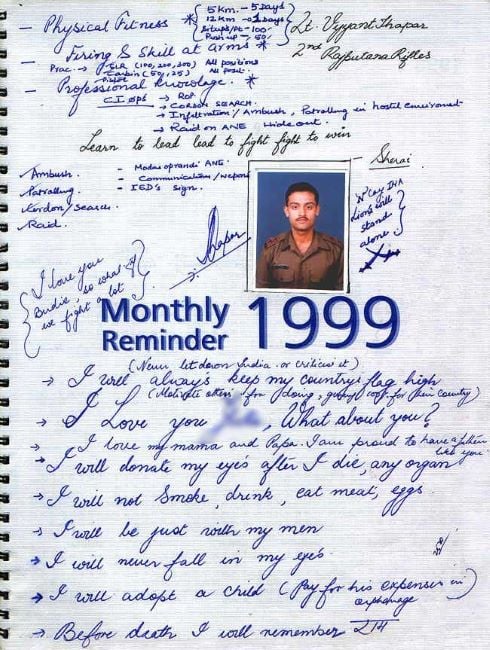 - Physical Fitness *
5 Km. - 5 Days
12 Km - 2 Days
Situps/Pt - 100
Push up - 50
Lt. Vijyant Thapar
2nd Rajputana Rifles
- Firing & Skill at Arms *
Prac. → SLR (100, 200, 300) All positions
Carbin (50, 25) All posit.
Pistol
- Professional knowlage. *
CI OPS → ROP
→ CORDON SEARCH.
→ Infeltration/Ambush, Patrolling in hostil enviroment
→ Raid on ANE Hide out.
Learn to lead lead to fight fight to win
Sherai
Ambush.
Patrolling.
Kordon/search.
Raid.
- Modus oprandi ANE.
- Communication/weapon
- IED's sign.
N Coy IMA
Lions will
stand
alone
Thapar
I love you
Birdie so what if
we fight a lot
Monthly
Reminder 1999
(Never let down India or criticis it)
→ I will always keep my country flag high
(Motivate others for doing, for their country)
→ I Love you , What about you?
→ I love my mama and Papa. I am proud to have a father
like you
→ I will donate my eyes after I die, any organ
→ I will not Smoke, drink, eat meat, eggs
→ I will be just with my men
→ I will never fall in my eyes
→ I will adopt a child (Pay for his expenses in)
orphanage
→ Before death I will remember